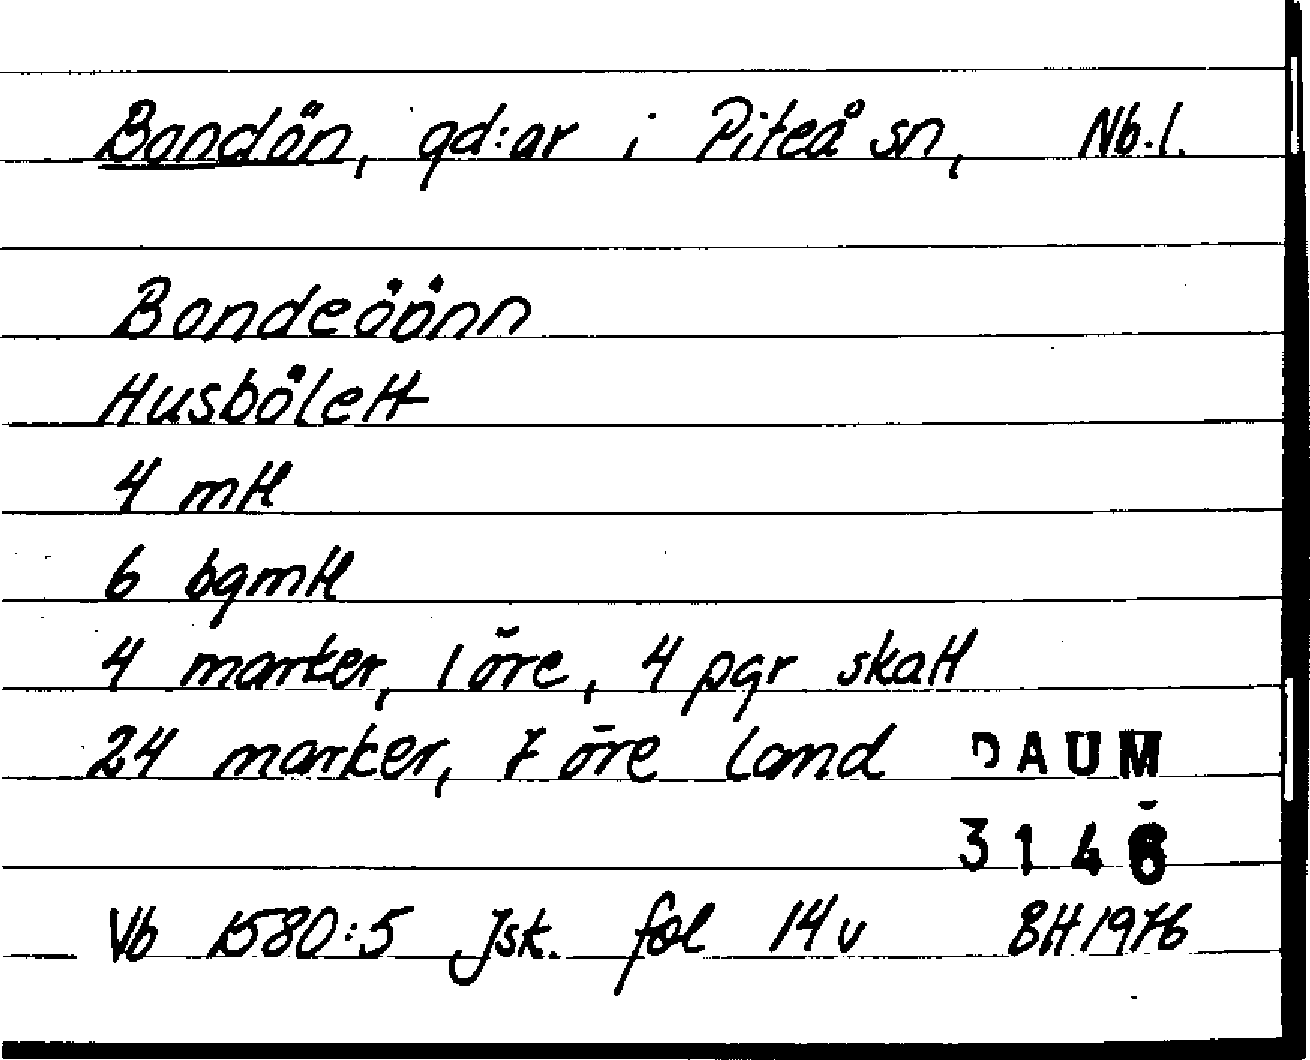 Bondön, gd:ar i Piteå sn, Nb.l.
Bondeöönn
Husbölett
4 mtl
6 bgmtl
4 marker, 1 öre, 4 pgr skatt
24 marker, 7 öre land
DAUM
3146
Vb 1580:5 Jsk. fol 14v BH 1976